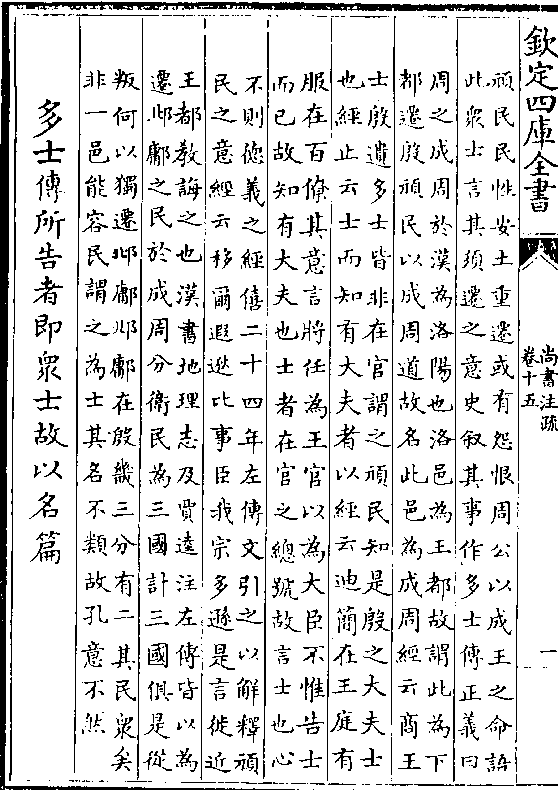 欽定四庫全書
尚書注疏
卷十五
一
頑民民性安土重遷或有怨恨周公以成王之命誥
此衆士言其須遷之意史叙其事作多士傳正義曰
周之成周於漢為洛陽也洛邑為王都故謂此為下
都遷殷頑民以成周道故名此邑為成周經云商王
士殷遺多士皆非在官謂之頑民知是殷之大夫士
也經止云士而知有大夫者以經云迪簡在王庭有
服在百僚其意言將任為王官以為大臣不惟告士
而已故知有大夫也士者在官之總號故言士也心
不則德義之經僖二十四年左傳文引之以解釋頑
民之意經云移爾遐逖比事臣我宗多遜是言徙近
王都教誨之也漢書地理志及賈逵注左傳皆以為
遷邶鄘之民於成周分衛民為三國計三國俱是從
叛何以獨遷邶鄘邶鄘在殷畿三分有二其民衆矣
非一邑能容民謂之為士其名不類故孔意不然
多士傳所告者即衆士故以名篇